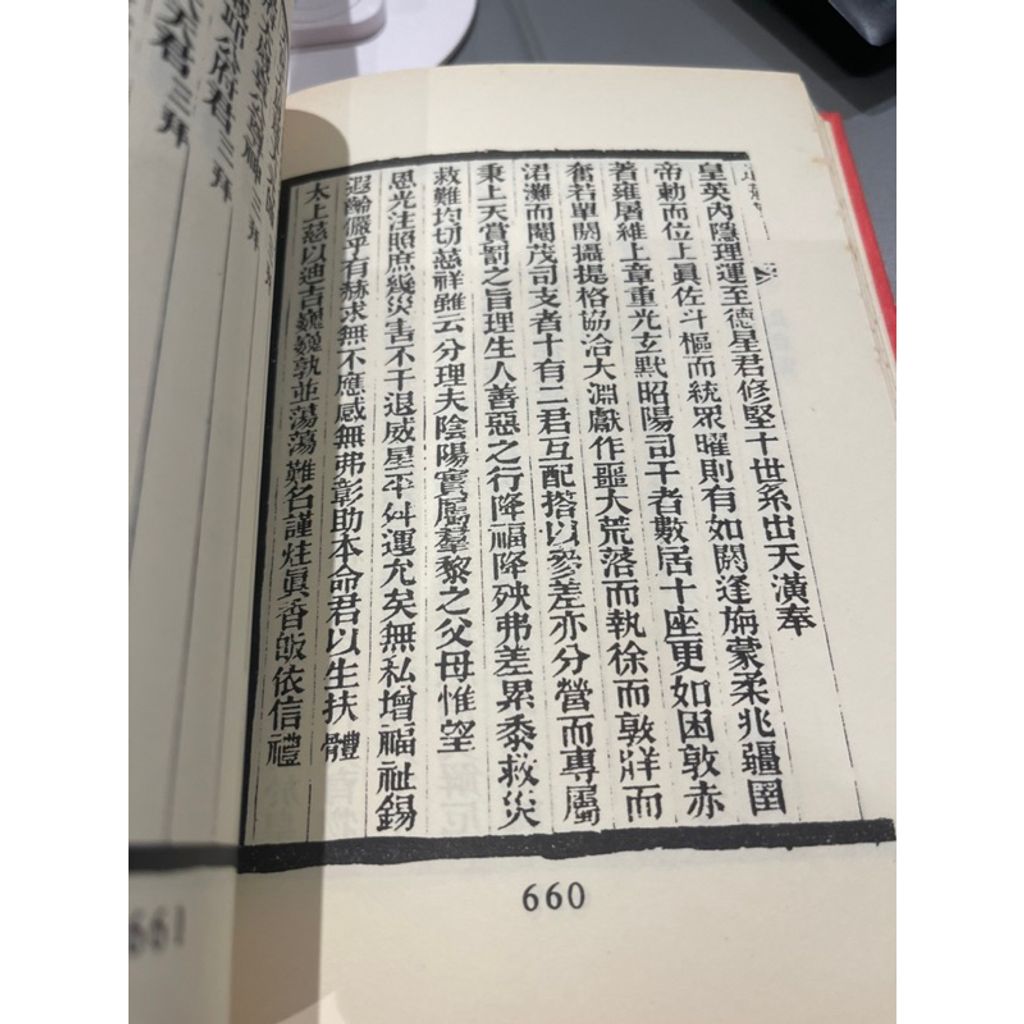 皇英內隱理運至德星君修堅十世系出天潢奉
帝勅而位上眞佐斗樞而統眾曜則有如閼逢旃蒙柔兆疆圉
著雍屠維上章重光玄默昭陽司干者數居十座更如困敦赤
奮若單閼攝提格協洽大淵獻作噩大荒落而執徐而敦牂而
涒灘而閹茂司支者十有二君互配搭以參差亦分營而專屬
秉上天賞罰之旨理生人善惡之行降福降殃弗差累黍救災
救難均切慈祥雖云分理夫陰陽實屬羣黎之父母惟望
恩光注照庶幾災害不干退威星平舛運尤矣無私增福祉錫
遐齡儼乎有赫求無不應感無弗彰助本命君以生扶體
太上慈以迪吉巍巍孰並蕩蕩難名謹炷眞香皈依信禮
660
尊神三拜
府君三拜
君三拜
661